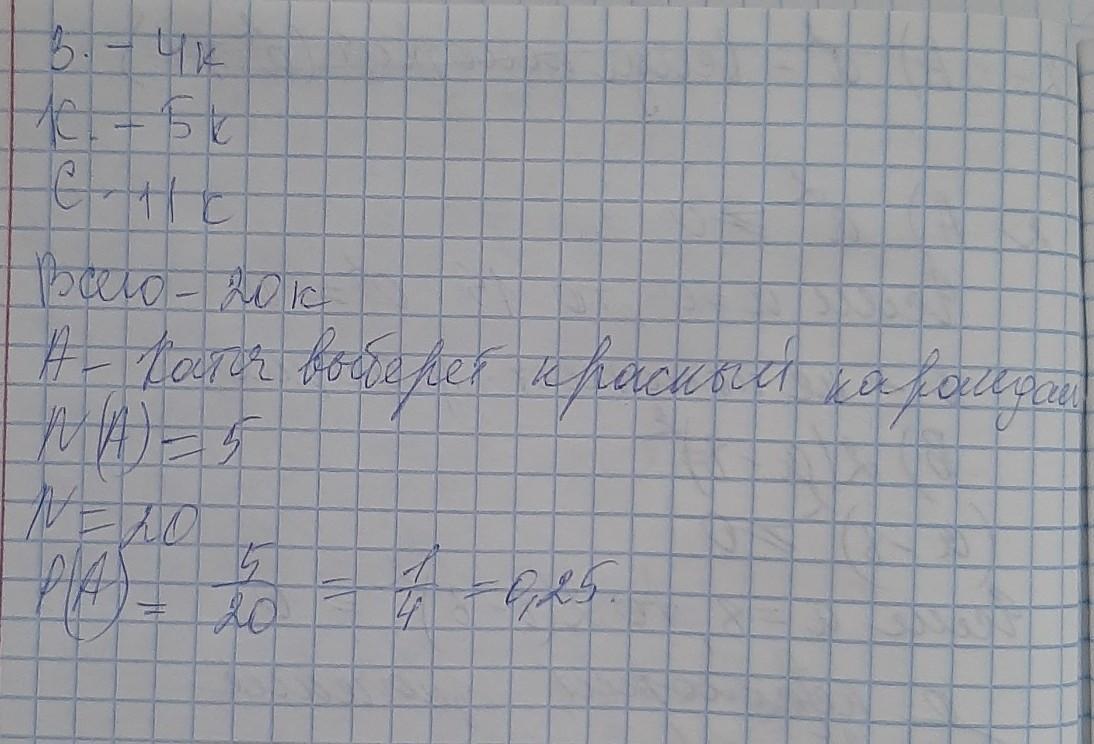 З. - 4к
К. - 5к
С - 11 к
Всего - 20 к
А - Катя выберет красный карандаш
N(A) = 5
N = 20
P(A) = 5/20 = 1/4 = 0,25.